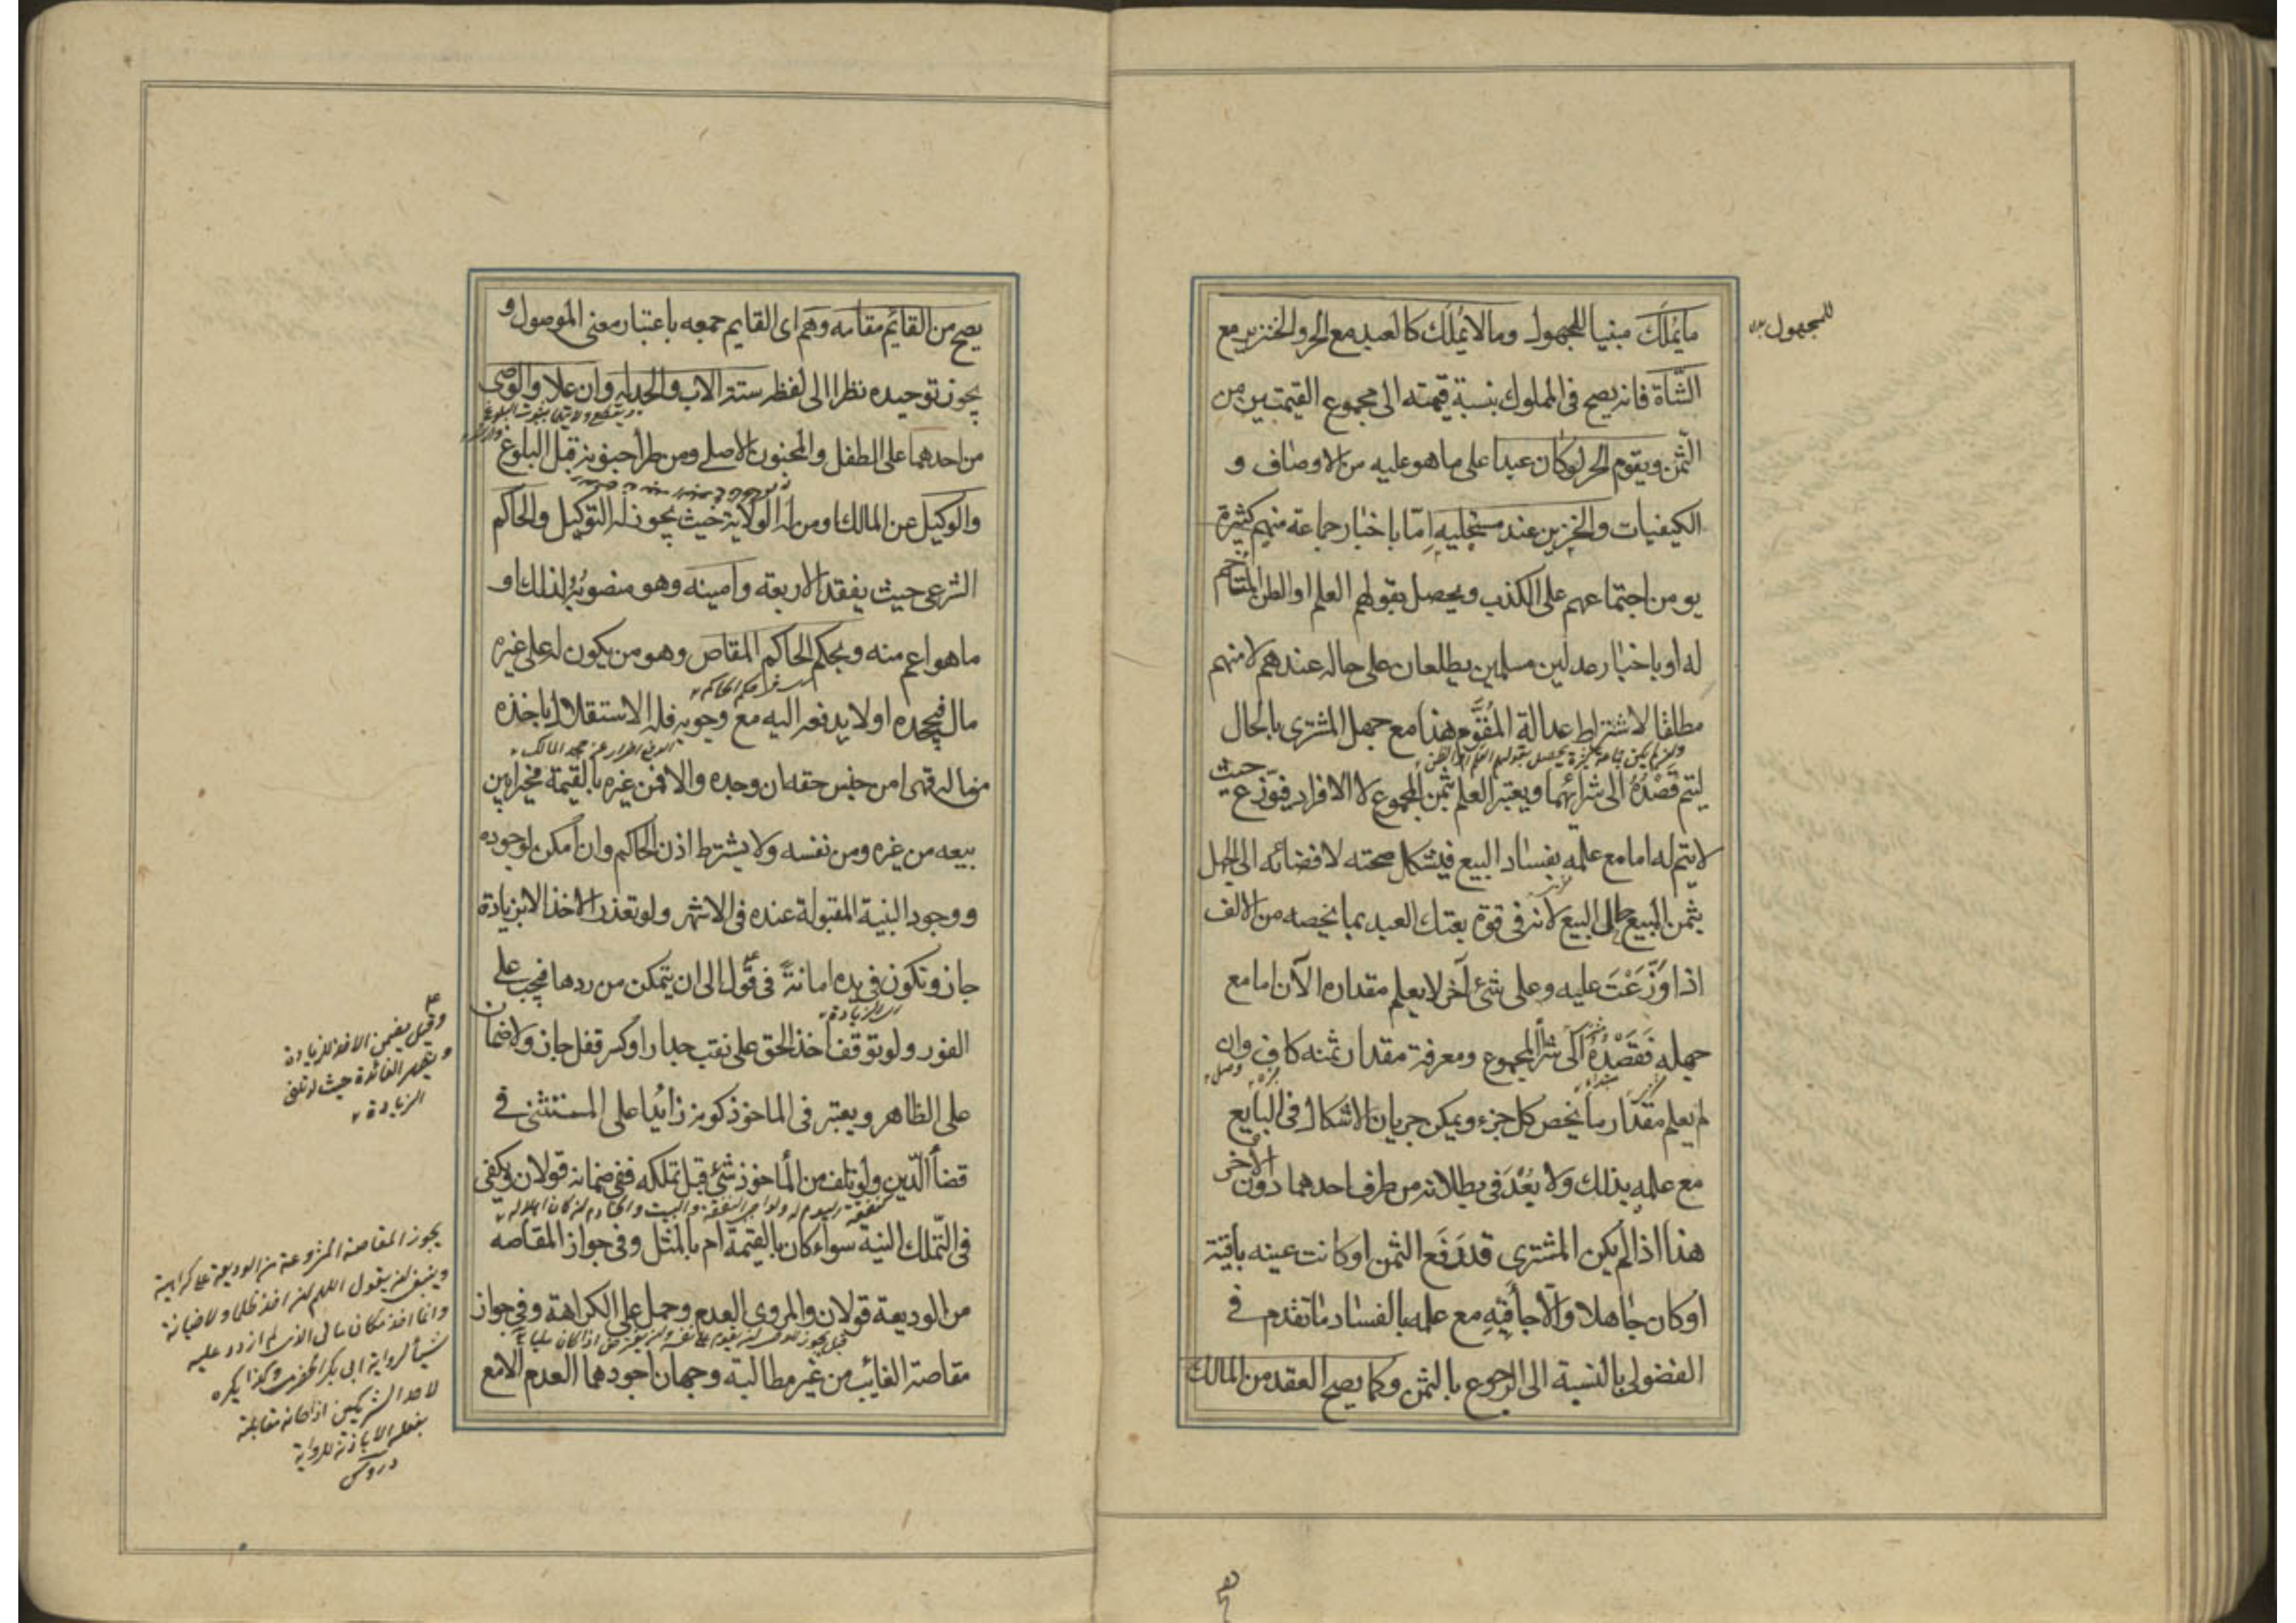 ما يُملَك مبنيا للمجهول وما لا يُملَك كالعبد مع الحر والخنزير مع
الشاة فانه يصح فى المملوك بنسبة قيمته الى مجموع القيمتين من
الثمن ويقوم الحر لوكان عبدا على ماهو عليه من الاوصاف و
الكيفيات والخنزير عند مستحليه اِمّا باخبار جماعة منهم كثيرة
يومن اجتماعهم على الكذب ويحصل بقولهم العلم او الظن المتاخم
له او باخبار عدلين مسلمين يطلعان على حاله عندهم لا منهم
مطلقا لاشتراط عدالة المُقَوِّم هذا مع جهل المشترى بالحال
ليتم قَصْدُهُ الى شرائهما ويعتبر العلم بثمن المجموع لا الافراد فيوزع حيث
لا يتم له اما مع علمه بفساد البيع فيشكل صحته لافضائه الى الجهل
بثمن المبيع حال البيع لانه فى قوة بعتك العبد بما يخصه من الالف
اذا وَزَّعْتَ عليه وعلى شئ آخر لا يعلم مقداره الآن اما مع
جهله فَقَصْدُهُ الى شرأ المجموع ومعرفة مقدار ثمنه كاف وان
لم يعلم مقدار ما يخص كل جزء ويمكن جريان الاشكال فى البايع
مع علمه بذلك ولا بُعْدَ فى بطلانه من طرف احدهما دون الآخر
هذا اذا لم يكن المشترى قد دَفَع الثمن او كانت عينه باقية
او كان جاهلا والّا جأ فيه مع علمه بالفساد ما تقدم فى
الفضولى بالنسبة الى الرجوع بالثمن وكما يصح العقد من المالك
للمجهول
يصح من القائم مقامه وهم اى القايم جمعه باعتبار معنى الموصول و
يجوز توحيده نظرا الى لفظه ستة الاب والجد له وان علا والوصى
من احدهما على الطفل والمجنون الاصلى ومن طرأ جنونه قبل البلوغ
والوكيل عن المالك او من له الولاية حيث يجوز له التوكيل والحاكم
الشرعى حيث يفقد الاربعة وامينه وهو منصوبُهُ لذلك او
ما هو اعم منه وبحكم الحاكم المقاص وهو من يكون له على غيره
مال فيجحده او لا يدفعه اليه مع وجوبه فله الاستقلال باخذه
من ماله قهرا من جنس حقه ان وجده والا فمن غيره بالقيمة مخيرا بين
بيعه من غيره ومن نفسه ولا يشترط اذن الحاكم وان امكن لوجوده
ووجود البينة المقبولة عنده فى الاشهر ولو تعذر الاخذ الا بزيادة
جاز وتكون فى يده امانة فى قول الى ان يتمكن من ردها فيجب على
الفور ولو توقف اخذ الحق على نقب جدار او كسر قفل جاز ولا ضمان
على الظاهر ويعتبر فى الماخوذ كونه زائدا على المستثنى فى
قضأ الدّين ولو تلف من المأخوذ شئ قبل تملكه ففى ضمانه قولان ويكفى
فى التّملك النية سواء كان بالقيمة ام بالمثل وفى جواز المقاصه
من الوديعة قولان والمروى العدم وحمل على الكراهة وفى جواز
مقاصة الغائب من غير مطالبة وجهان اجودهما العدم الا مع
وقيل يضمن الاخذ للزيادة
ويظهر الفائدة حيث
الزيادة
يجوز المقاصة المشروعة من الوديعة على كراهية
وينبغى ان يقول اللهم لن اخذه ظلما ولا خيانة
وانما اخذته مكان مالى الذى لم ازدد عليه
شيأ لرواية ابى بكر الحضرمى وكذا يكره
دروس